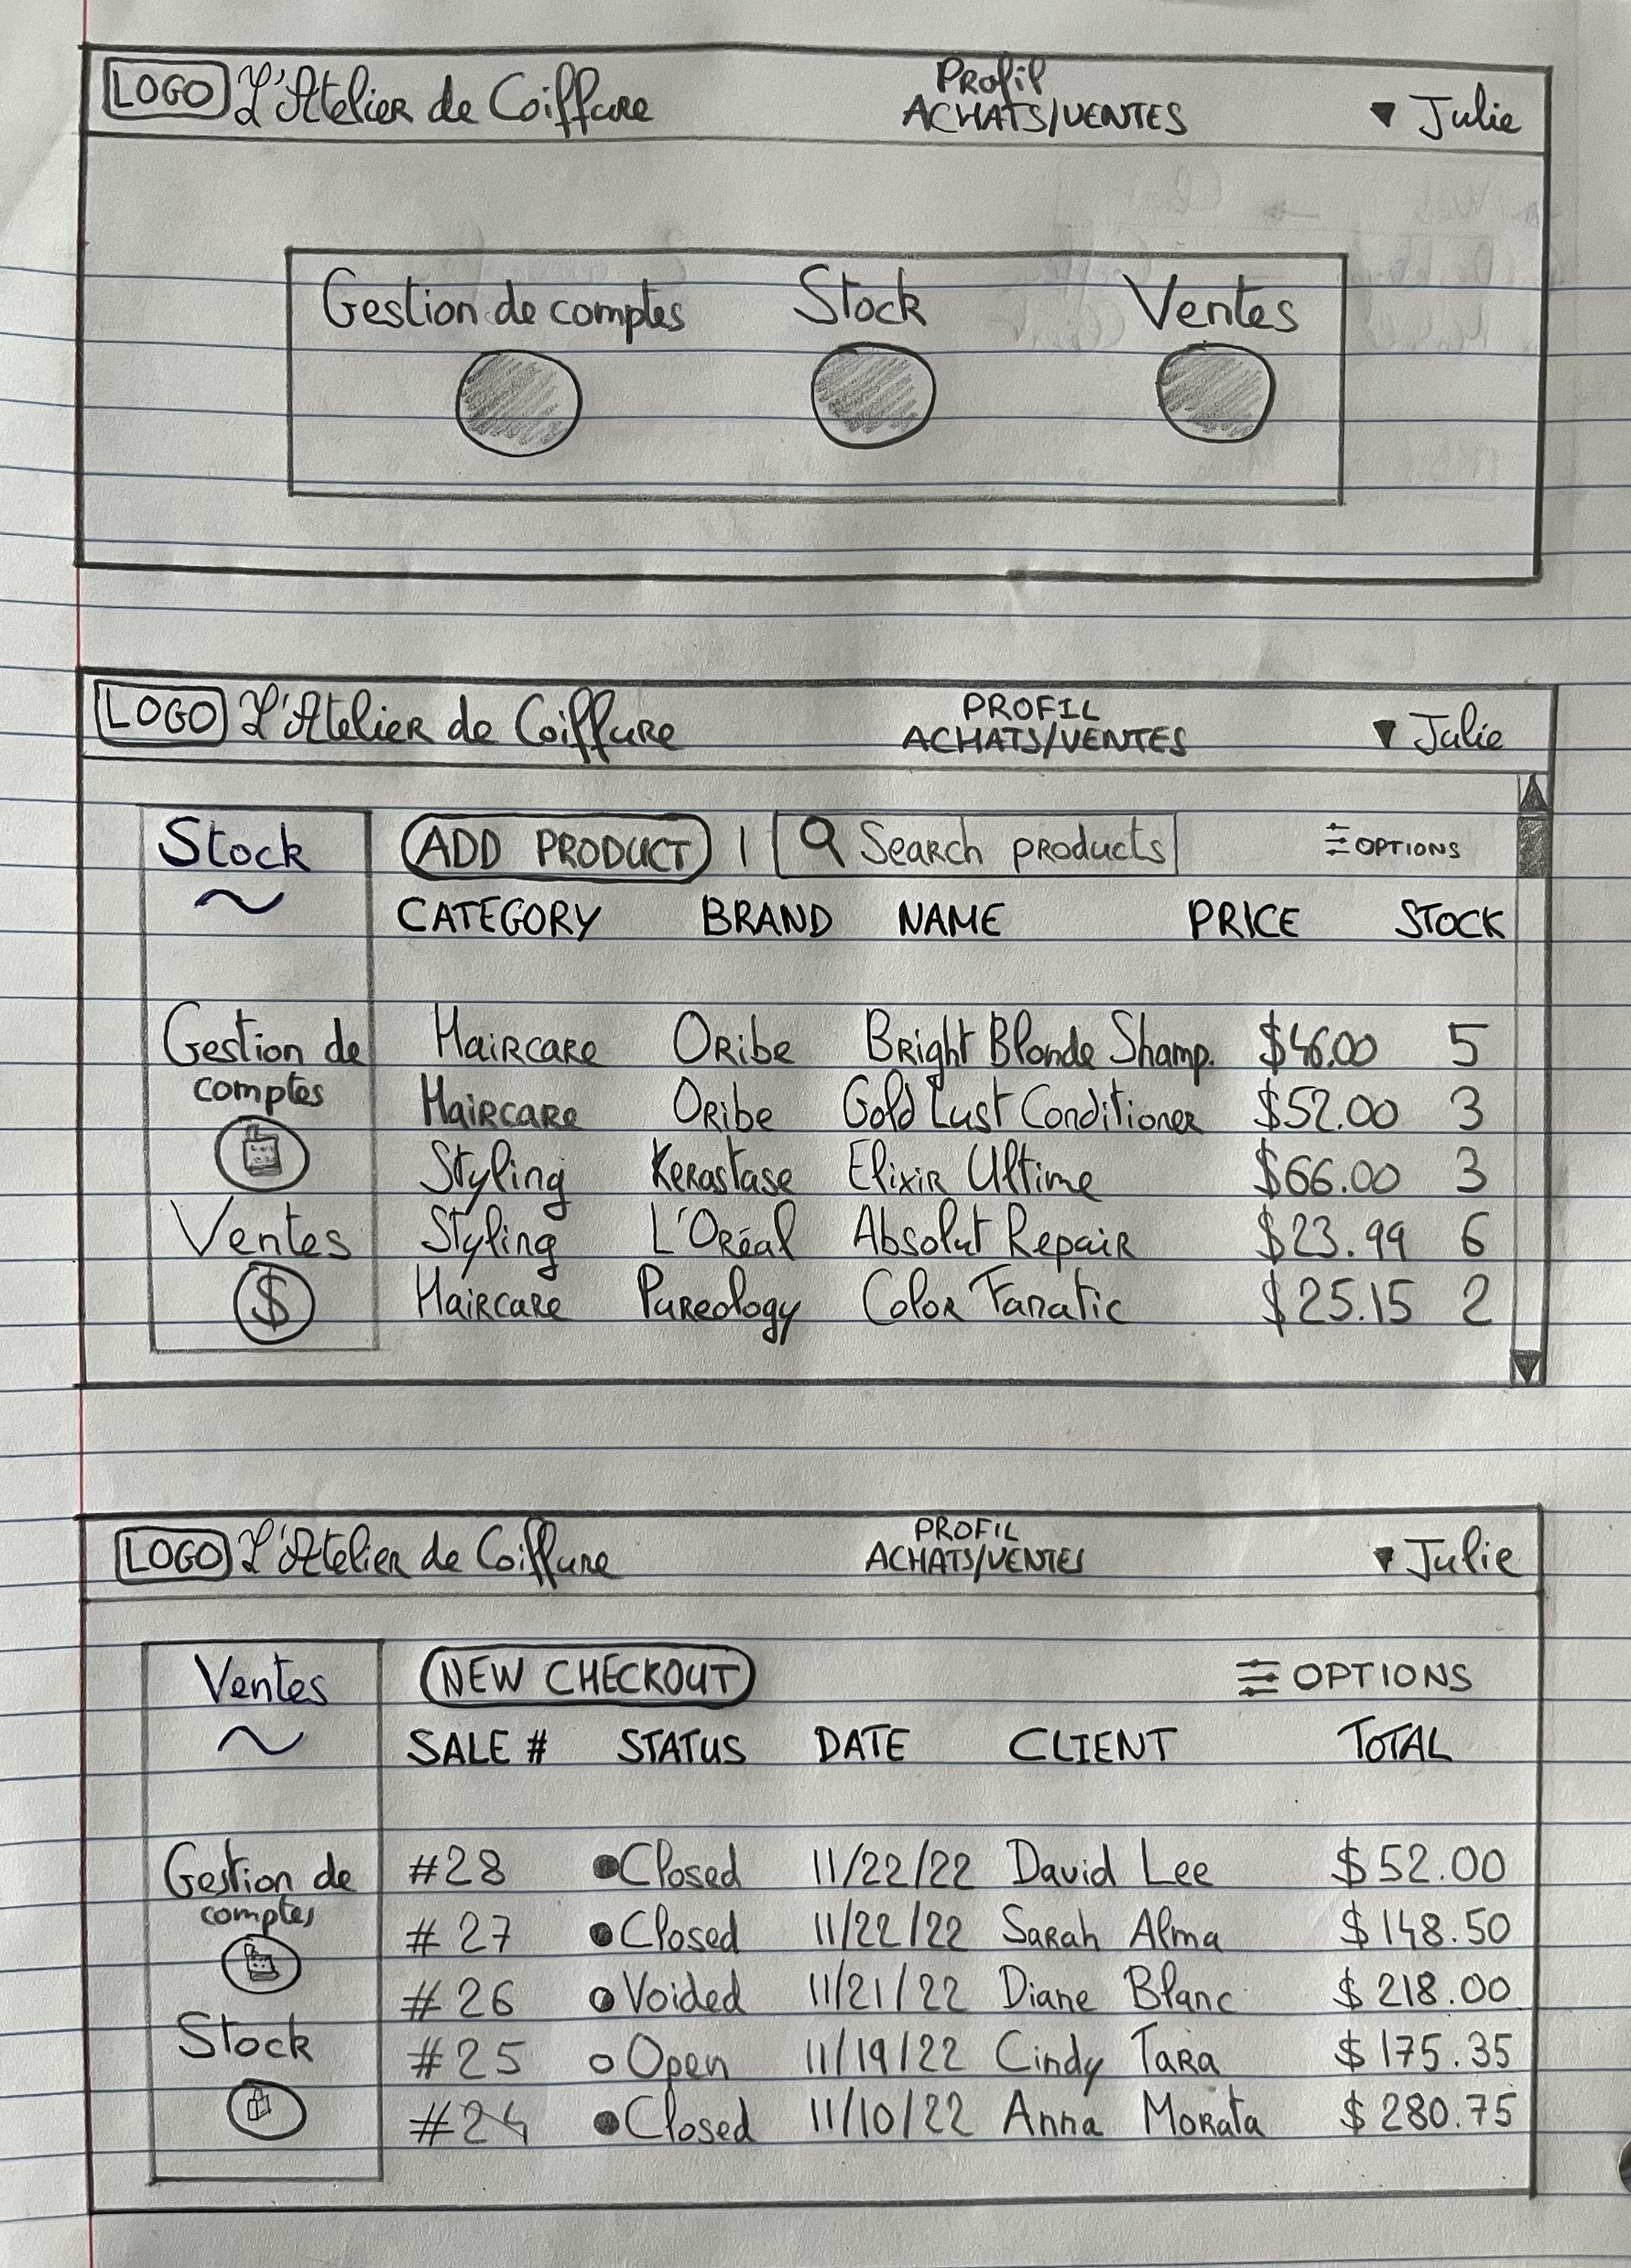 LOGO L'Atelier de Coiffure Profil ▼ Julie
ACHATS/VENTES
Gestion de comptes Stock Ventes
LOGO L'Atelier de Coiffure PROFIL ▼ Julie
ACHATS/VENTES
Stock ADD PRODUCT | Search products OPTIONS
~ CATEGORY BRAND NAME PRICE STOCK
Gestion de Haircare Oribe Bright Blonde Shamp. $46.00 5
comptes Haircare Oribe Gold Lust Conditioner $52.00 3
Styling Kerastase Elixir Ultime $66.00 3
Ventes Styling L'Oréal Absolut Repair $23.99 6
$ Haircare Pureology Color Fanatic $25.15 2
LOGO L'Atelier de Coiffure PROFIL ▼ Julie
ACHATS/VENTES
Ventes NEW CHECKOUT OPTIONS
~ SALE # STATUS DATE CLIENT TOTAL
Gestion de #28 Closed 11/22/22 David Lee $52.00
comptes #27 Closed 11/22/22 Sarah Alma $148.50
#26 Voided 11/21/22 Diane Blanc $218.00
Stock #25 Open 11/19/22 Cindy Tara $175.35
#24 Closed 11/10/22 Anna Morata $280.75